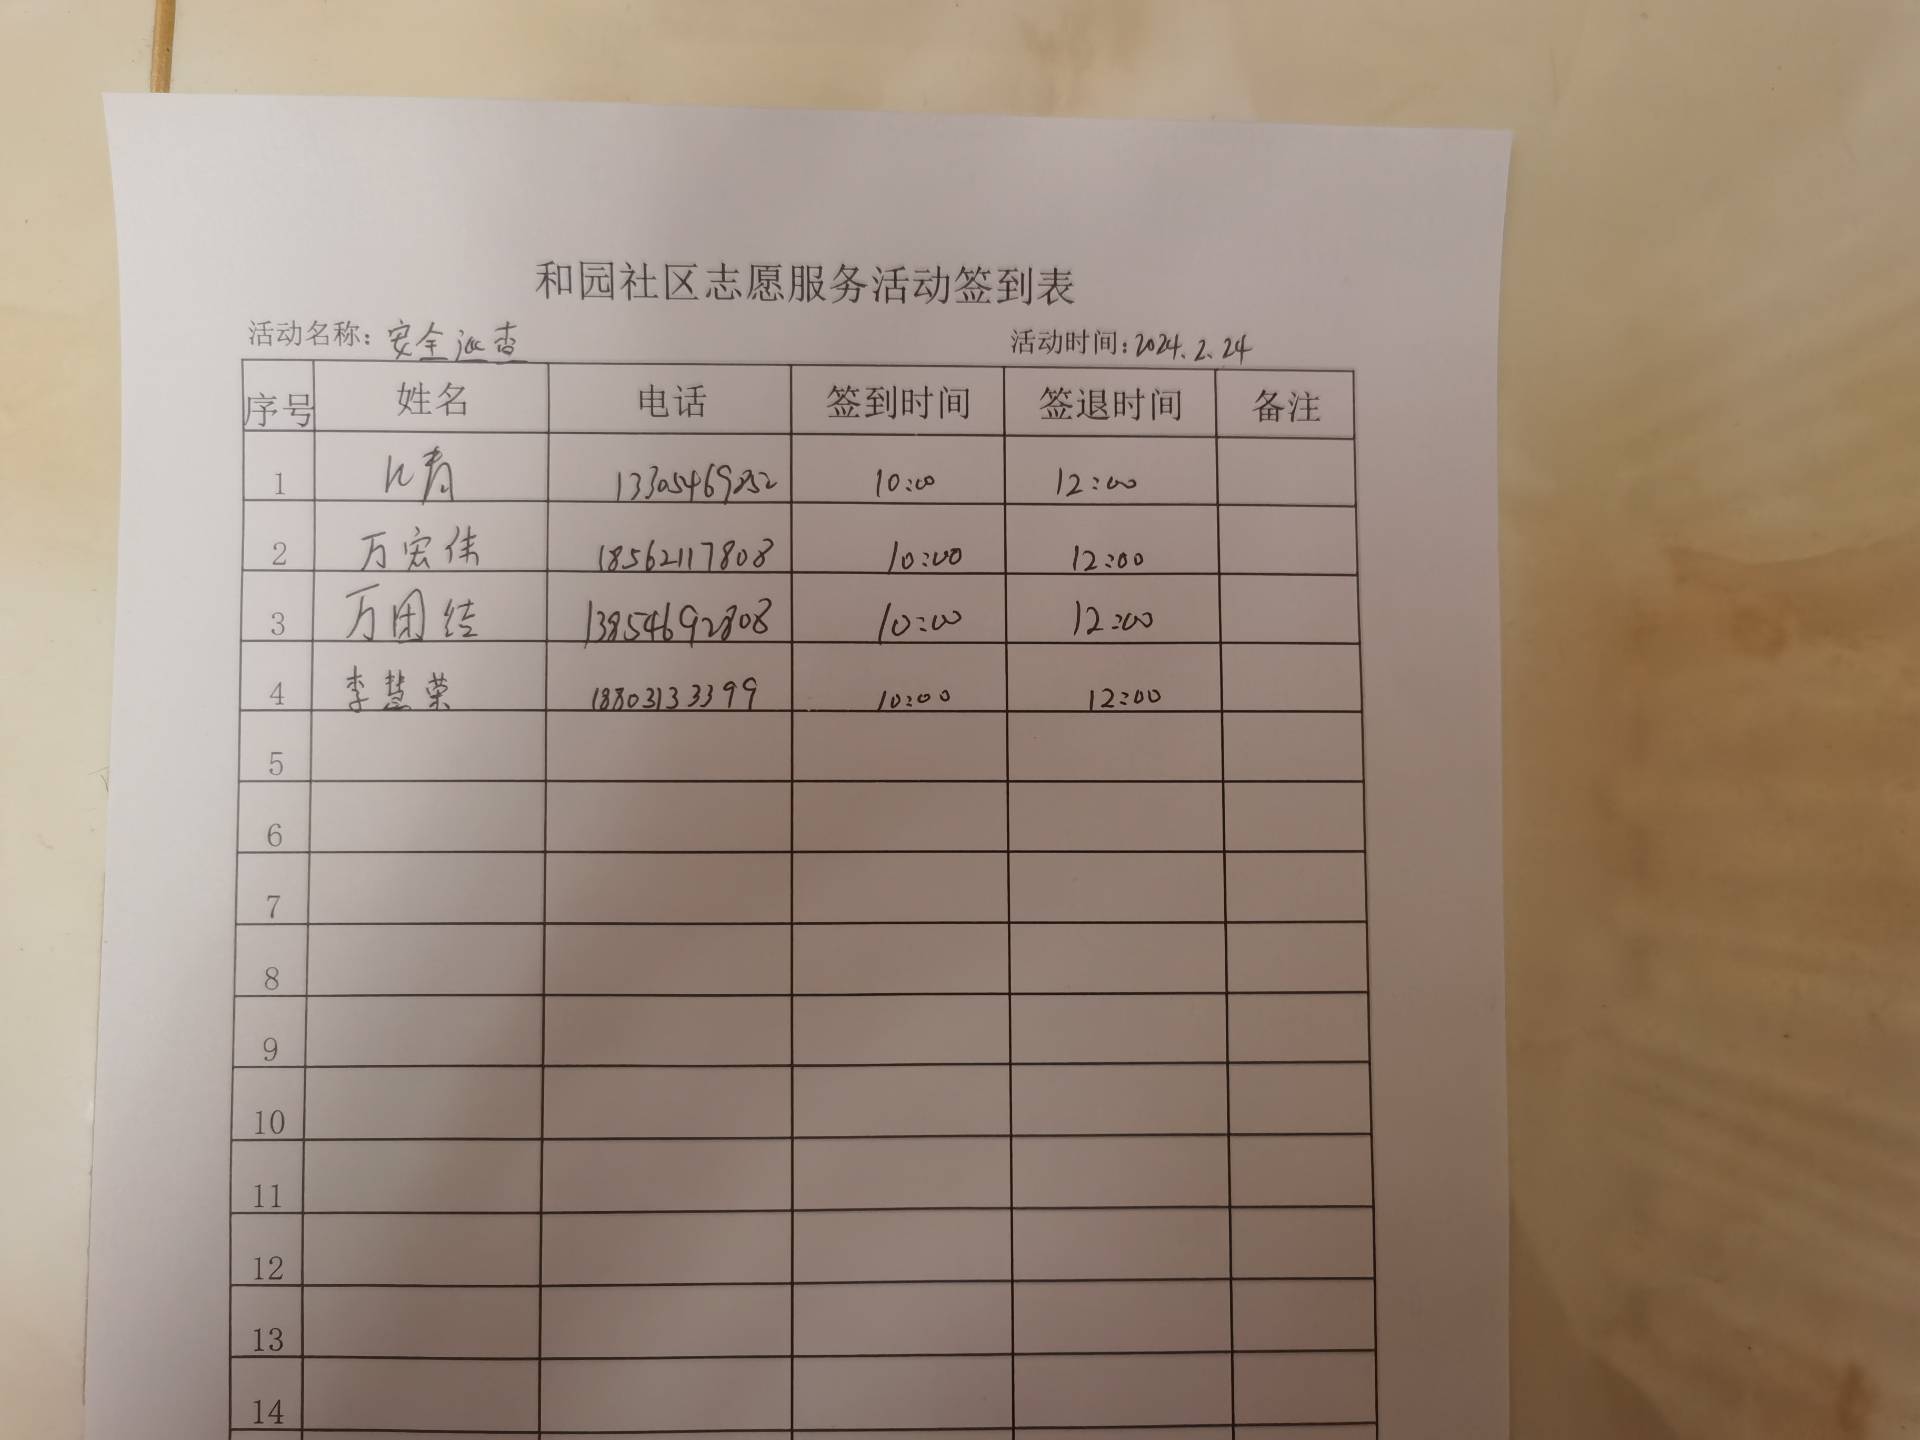 和园社区志愿服务活动签到表
活动名称：安全巡查 活动时间：2024.2.24
序号 姓名 电话 签到时间 签退时间 备注
1 青 13305469852 10:00 12:00
2 万宏伟 18562117808 10:00 12:00
3 万团结 13854692808 10:00 12:00
4 李慧荣 18803133399 10:00 12:00
5
6
7
8
9
10
11
12
13
14